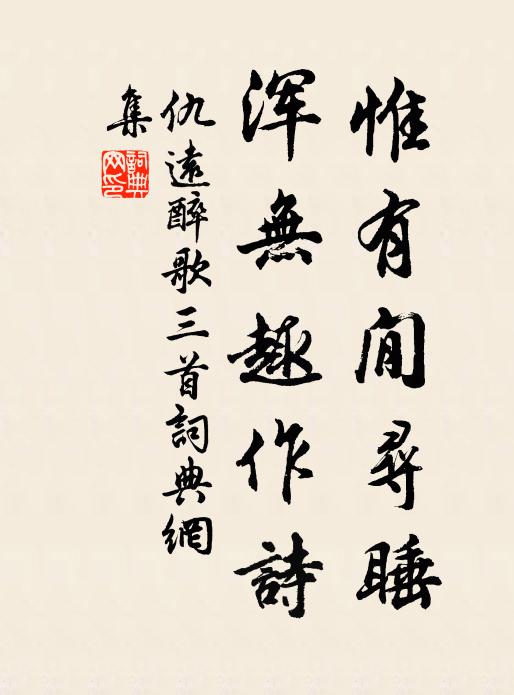 惟有閒尋睡
渾無趣作詩
仇遠醉歌三首詞典網
集
詞典網印